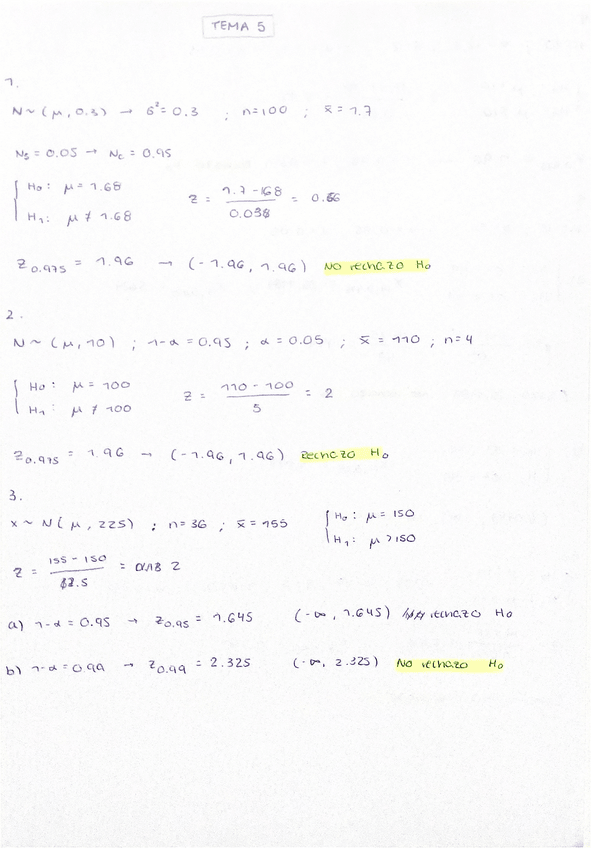 TEMA 5
1.
N ~ (μ, 0.3) → σ² = 0.3 ; n=100 ; x̄ = 1.7
Ns = 0.05 → Nc = 0.95
H₀: μ = 1.68
H₁: μ ≠ 1.68
Z = (1.7 - 1.68) / 0.038 = 0.66
Z0.975 = 1.96 → (-1.96, 1.96) NO rechazo H₀
2.
N ~ (μ, 10) ; 1-α = 0.95 ; α = 0.05 ; x̄ = 110 ; n=4
H₀: μ = 100
H₁: μ ≠ 100
Z = (110 - 100) / 5 = 2
Z0.975 = 1.96 → (-1.96, 1.96) Rechazo H₀
3.
x ~ N(μ, 225) ; n = 36 ; x̄ = 155
H₀: μ = 150
H₁: μ > 150
Z = (155 - 150) / 2.5 = 2
a) 1-α = 0.95 → Z0.95 = 1.645 (-∞, 1.645) rechazo H₀
b) 1-α = 0.99 → Z0.99 = 2.325 (-∞, 2.325) No rechazo H₀